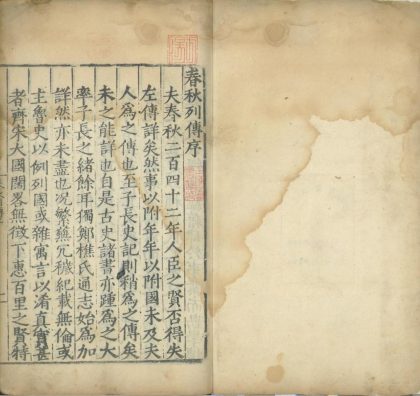 春秋列傳序
夫春秋二百四十二年人臣之賢否得失
左傳詳矣然事以附年年以附國未及夫
人為之傳也至子長史記則稍為之傳矣
未之能詳也自是古史諸書亦踵為之大
率子長之緒餘耳獨鄭樵氏通志始為加
詳然亦未盡也況繁蕪冗穢紀載無倫或
主魯史以例列國或雜寓言以淆真實甚
者齊宋大國闊畧無徵下惠百里之賢特